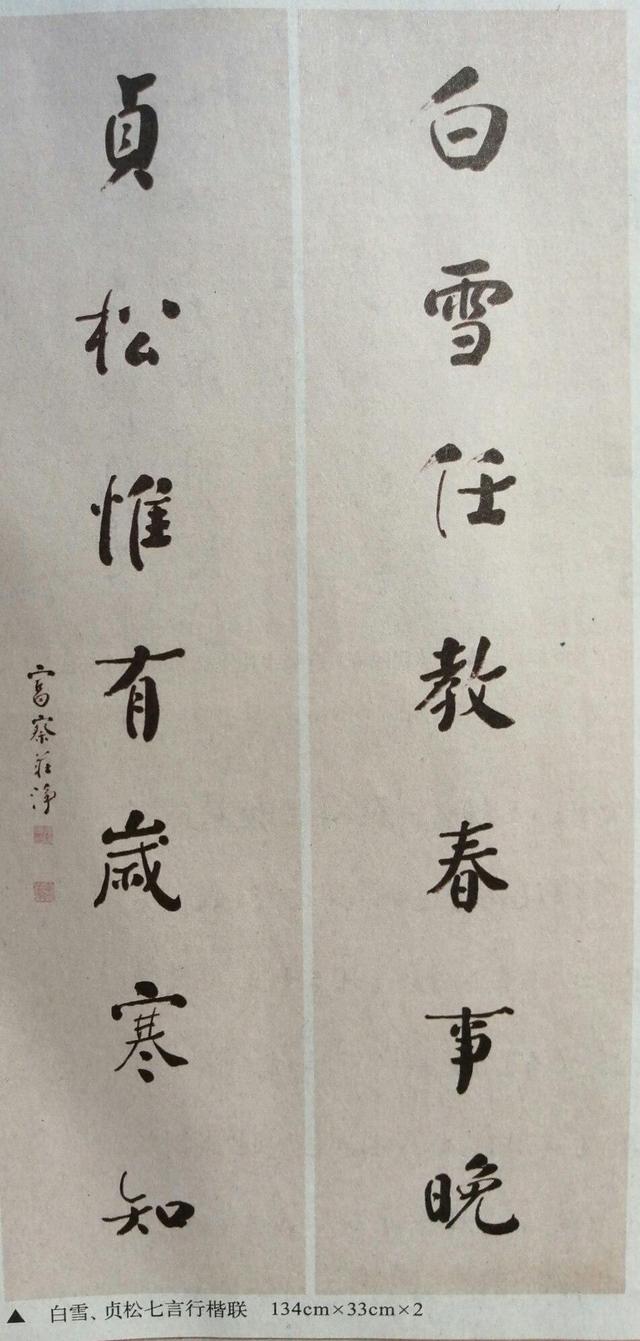 白雪任教春事晚
貞松惟有歲寒知
富察莊淨
▲ 白雪、贞松七言行楷联 134cm×33cm×2